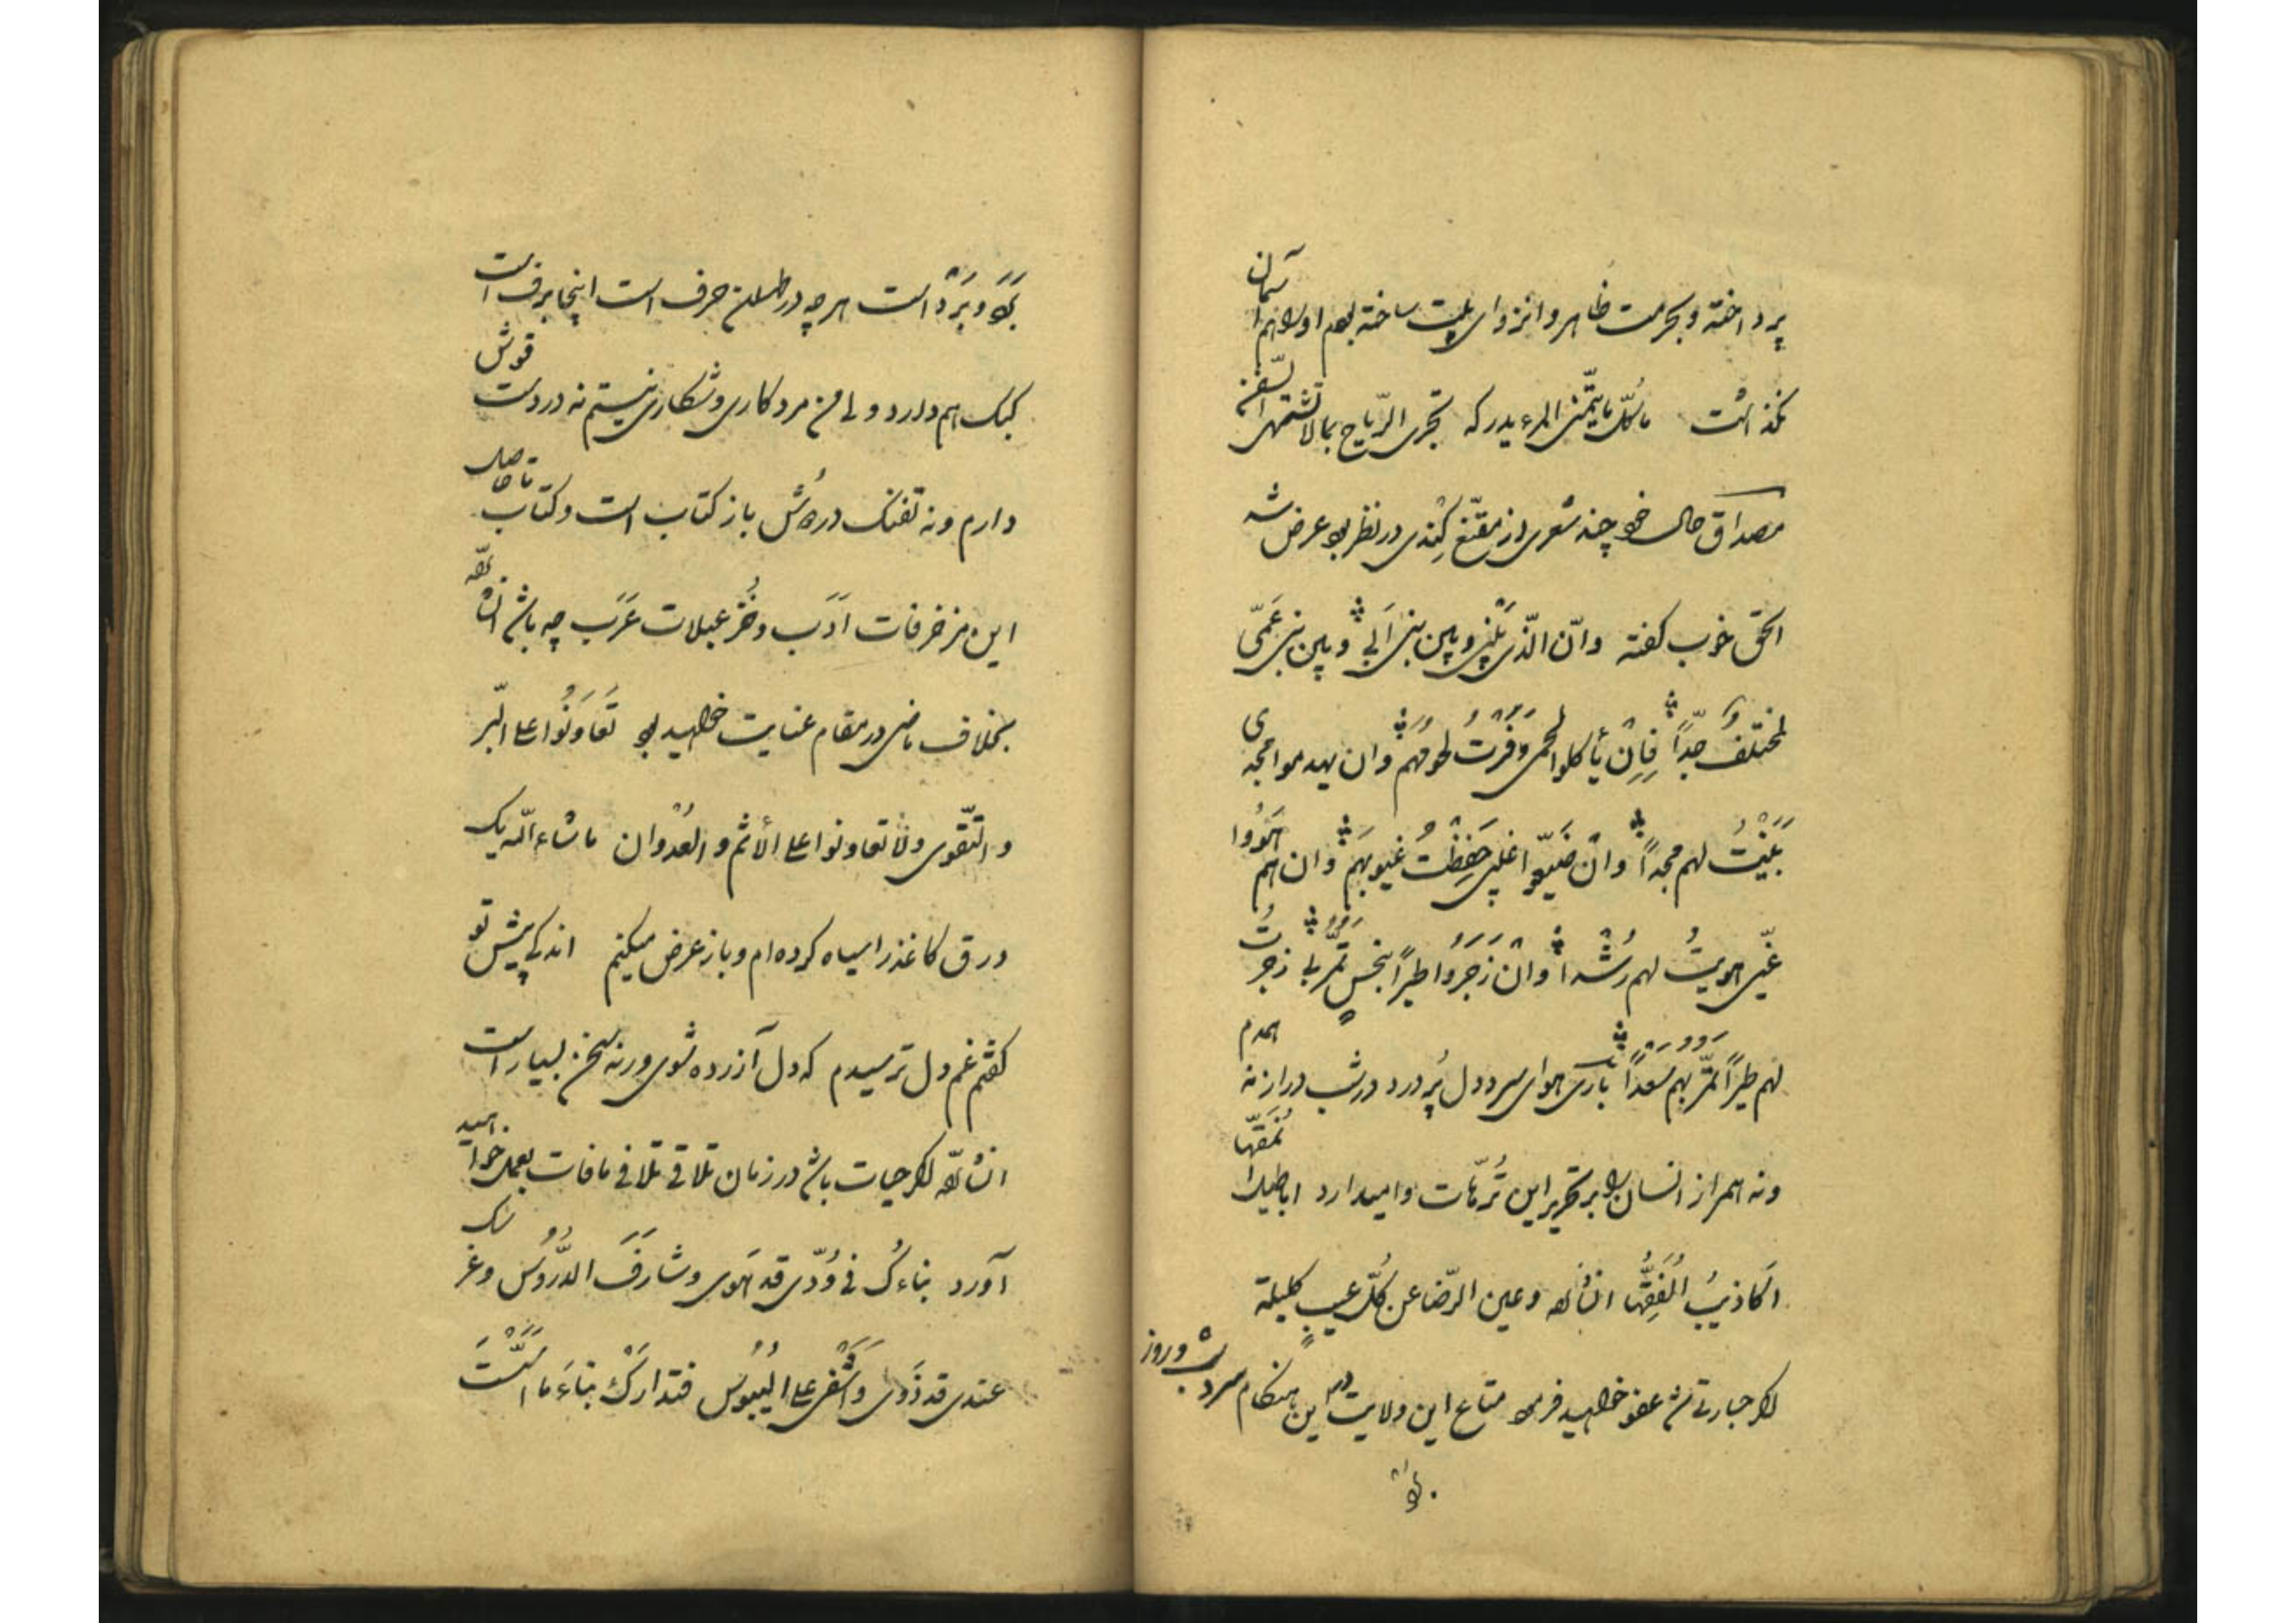 پرداخته و بحرمت ظاهر و انزوای بیت ساخته بودم او را هم آسمان
نگذاشت ما کلّ ما یتمنّی المرء یدرکه تجری الرّیاح بما لا تشتهی السّفن
مصداق حال خود چند شعری از مقنّع کِندی در نظر بود عرض شد
الحق خوب گفته وانّ الّذی بینی و بین بنی اَبی و بین بنی عَمّی
لمختلفُ جدّاً فاِن یأکلوا لحمی وَفَرْتُ لحومَهُم وان یهدموا مجدی
بَنَیْتُ لهم مجداً وان ضَیّعوا غیبی حَفِظْتُ غیوبَهُم وان هم هَوُوا
غَیّی هویتُ لهم رُشْداً وانْ زَجَرُوا طیراً بنحسٍ تَمُرُّ بی زجرتُ
لهم طیراً تمُرُّ بهم سَعْداً باری هوای سرد و دل پُر درد در شب دراز نه همدم
و نه همراز انسان را بر تحریر این تُرّهات وامیدارد اباطیل نُمَقّها
اَکاذیبُ اُلَفِّقُها انشاء الله وعین الرّضا عن کُلّ عیبٍ کلیلة
اگر جسارتی شد عفو خواهید فرمود متاع این ولایت در این هنگام سرد شب و روز
بَلا و بَرْد است هر چه در طهران حرف است اینجا برف است
کبک هم دارد ولی من مرد کاری و شکاری نیستم نه در دست قوش
دارم و نه تفنگ در دُش باز کتاب است و کتاب تا حاصل
این مزخرفات اَدَب و خُزعبلات عَرَب چه باشد انشاء الله
بخلاف ماضی در مقام عنایت خواهید بود تَعَاوَنُوا علی البّر
و التّقوی ولا تعاونوا علی الأثم و العُدْوان ما شاء الله یک
ورق کاغذ را سیاه کرده‌ام و باز عرض میکنم اندکی پیش تو
گفتم غم دل ترسیدم که دل آزرده شوی ورنه سخن بسیار است
انشاء الله اگر حیات باشد در زمان تلاقی تلافی مافات بعمل خواهید
آورد بناءکُ فی وُدّی قد هَوی وشارَفَ الدُّرُوسُ وغرسک
عندی قد ذَوی واَشْفی علی الیُبُوسُ فتدارَکْ بناءَ ما اَسَّسْتَ